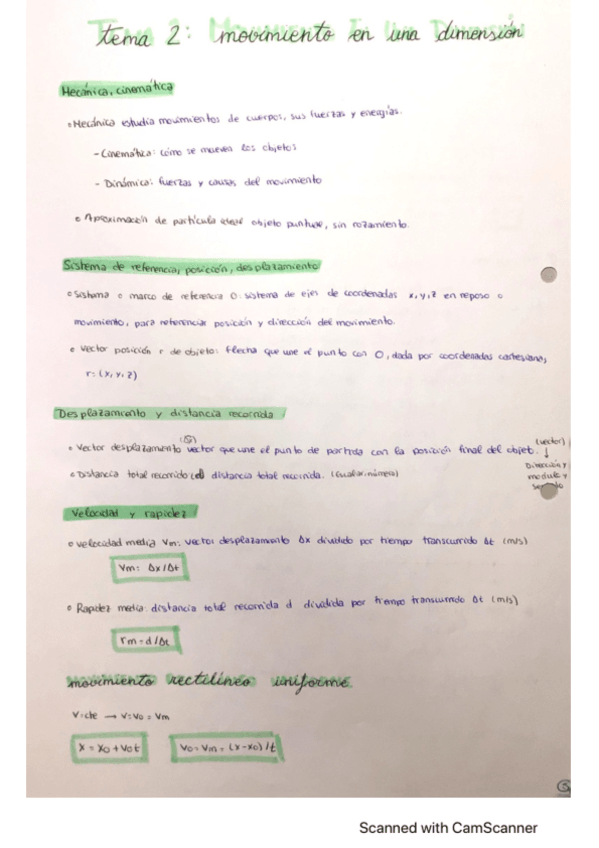 tema 2: movimiento En una Dimensión
Mecánica, cinemática
Mecánica estudia movimientos de cuerpos, sus fuerzas y energías.
- Cinemática: cómo se mueven los objetos
- Dinámica: fuerzas y causas del movimiento
Aproximación de partícula ideal objeto puntual, sin rozamiento.
Sistema de referencia, posición, desplazamiento
Sistema o marco de referencia O: sistema de ejes de coordenadas x, y, z en reposo o
movimiento, para referenciar posición y dirección del movimiento.
Vector posición r de objeto: flecha que une el punto con O, dada por coordenadas cartesianas,
r: (x, y, z)
Desplazamiento y distancia recorrida
Vector desplazamiento vector que une el punto de partida con la posición final del objet.
(vector)
↓
Dirección y
modulo y
Distancia total recorrido (d) distancia total recorrida. (escalar:número)
Velocidad y rapidez
velocidad media Vm: vector desplazamiento Δx dividido por tiempo transcurrido Δt (m/s)
Vm: Δx/Δt
Rapidez media: distancia total recorrida d dividida por tiempo transcurrido Δt (m/s)
rm = d/Δt
movimiento rectilíneo uniforme.
V=cte → V=Vo = Vm
X = Xo + Vo t
Vo = Vm = (x-xo)/t
Scanned with CamScanner